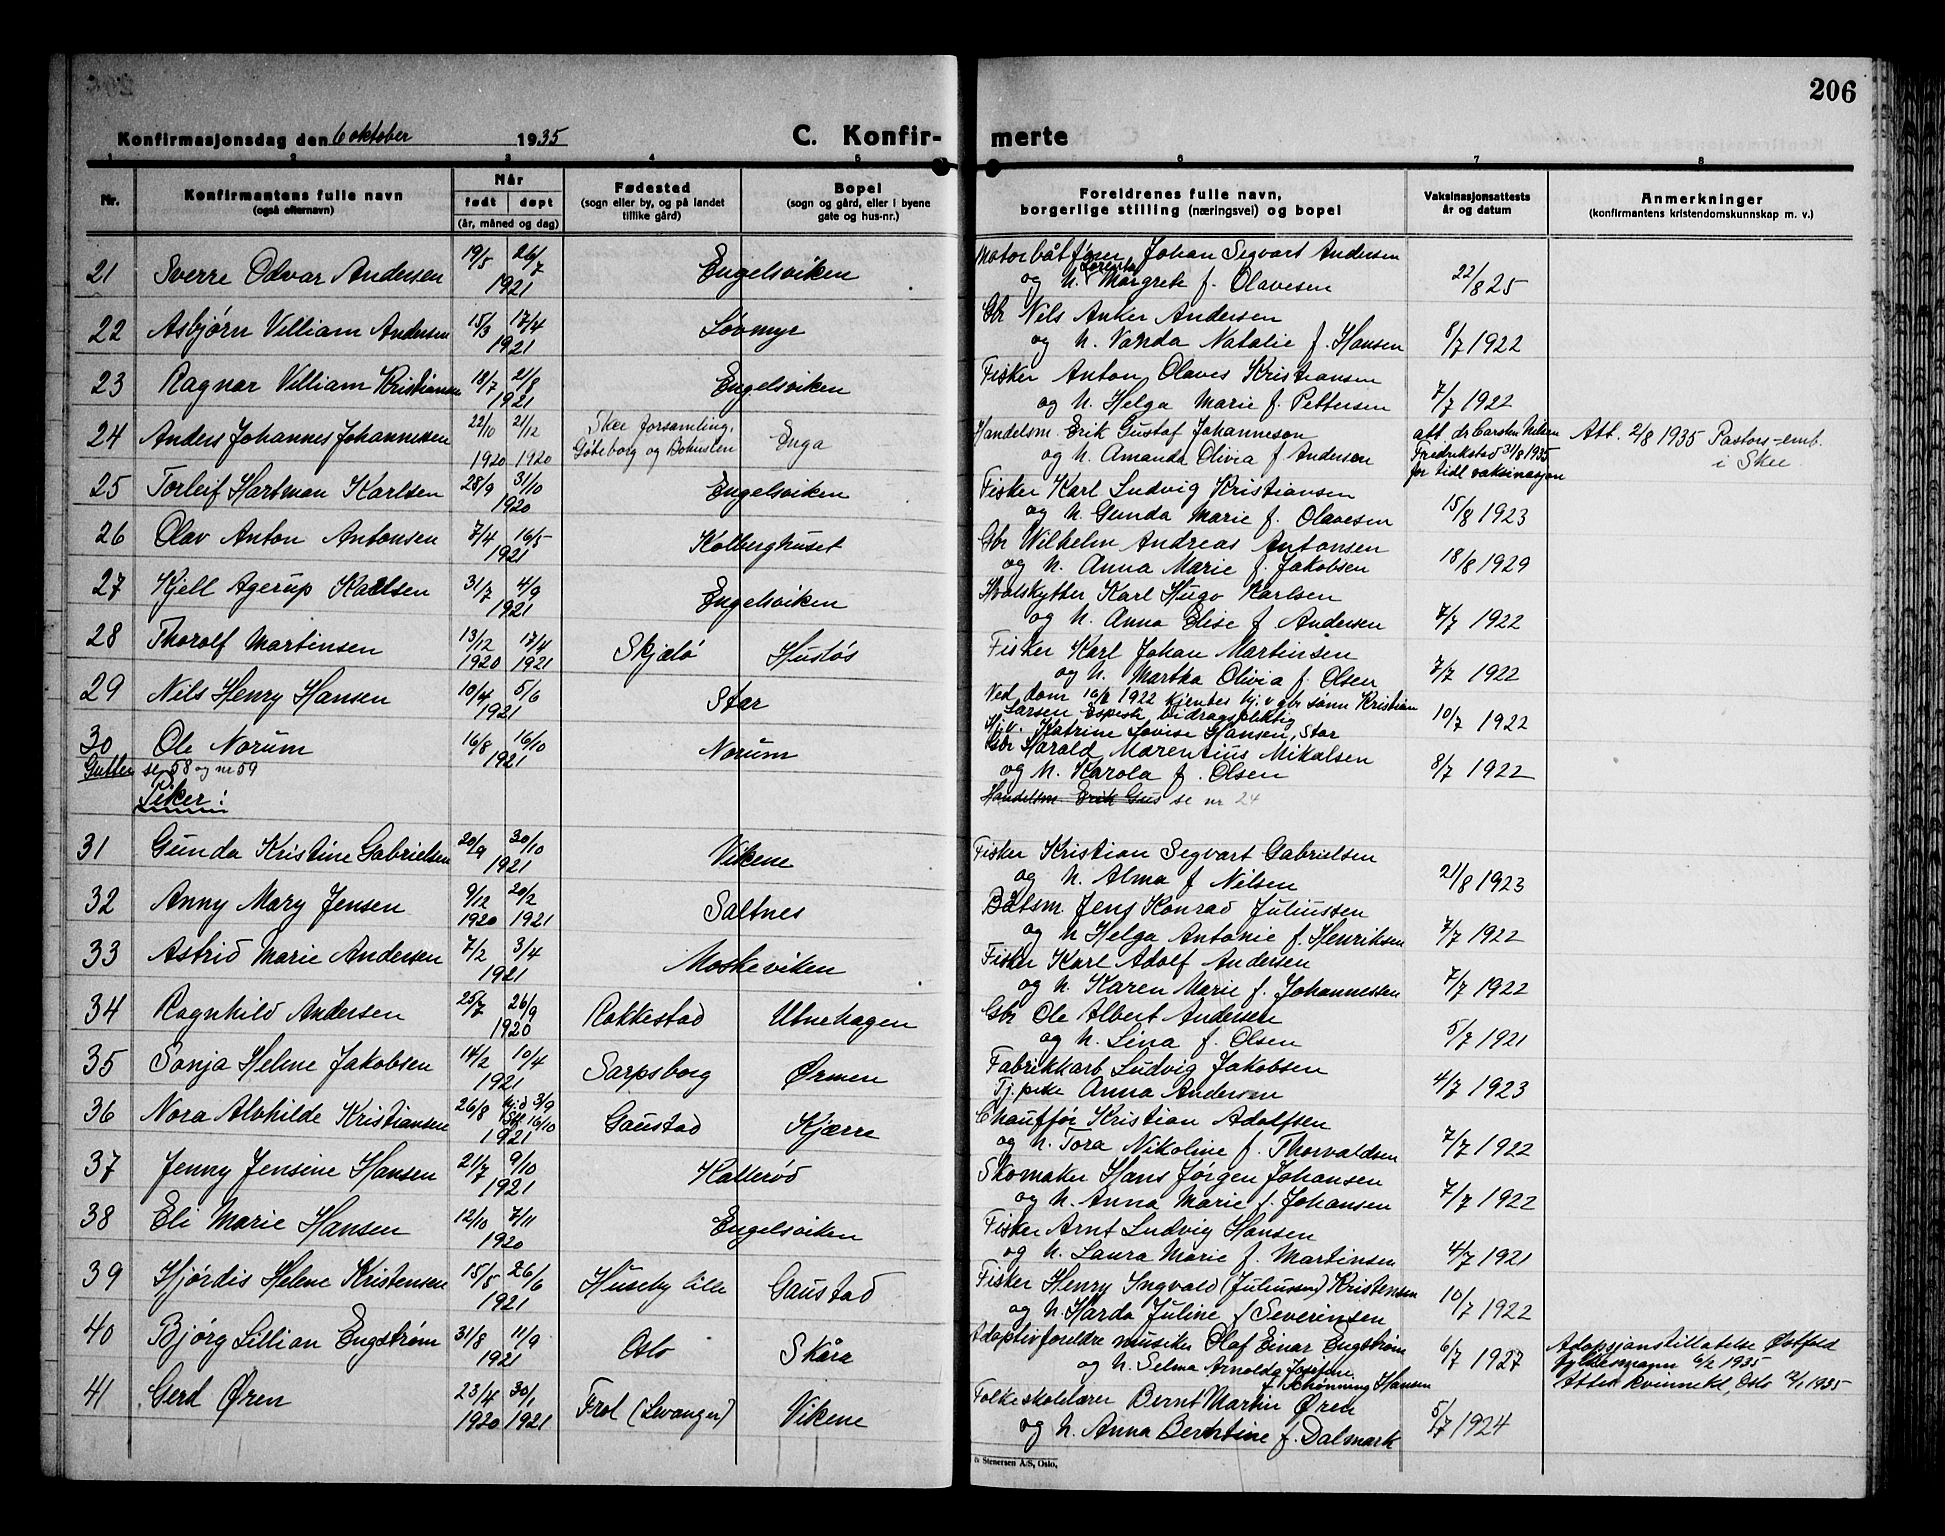 206
Konfirmasjonsdag den 6 oktober 1935
C. Konfir-
merte
1 2 3 4 5 6 7 8
Nr.
Konfirmantens fulle navn
(også efternavn)
Når
født døpt
(år, måned og dag)
Fødested
(sogn eller by, og på landet
tillike gård)
Bopel
(sogn og gård, eller i byene
gate og hus-nr.)
Foreldrenes fulle navn,
borgerlige stilling (næringsvei) og bopel
Vaksinasjonsattests
år og datum
Anmerkninger
(konfirmantens kristendomskunnskap m. v.)
21 Sverre Odvar Andersen 19/5 26/7 1921 Engelsviken
Motorbåtfører Johan Segvart Andersen
og h. Lorentse Margrete f. Olavesen 22/8 25
22 Asbjørn Villiam Andersen 15/3 17/4 1921 Løvmyr
Gbr Nils Anker Andersen
og h. Vanda Natalie f. Hansen 8/7 1922
23 Ragnar Villiam Kristiansen 18/7 21/8 1921 Engelsviken
Fisker Anton Olaves Kristiansen
og h. Helga Marie f. Pettersen 7/7 1922
24 Anders Johannes Johannesen 22/10 1920 21/12 1920 Skee forsamling, Göteborg og Bohuslen Enga
Handelsm. Erik Gustaf Johanneson
og h. Amanda Olivia f Andersen
att. dr Carsten Nilsen
Fredrikstad 31/8 1935
for tidl vaksinasjon
Att. 2/8 1935 Pastors-emb.
i Skee
25 Torleif Hartman Karlsen 28/9 31/10 1920 Engelsviken
Fisker Karl Ludvig Kristiansen
og h. Gunda Marie f. Olavesen 15/8 1923
26 Olav Anton Antonsen 7/4 16/5 1921 Kolberghuset
Gbr Wilhelm Andreas Antonsen
og h. Anna Marie f. Jakobsen 18/8 1929
27 Kjell Agerup Karlsen 31/7 4/9 1921 Engelsviken
Hvalskytter Karl Hugo Karlsen
og h. Anna Elise f Andersen 7/7 1922
28 Thorolf Martinsen 13/12 1920 17/4 1921 Skjælø Husløs
Fisker Karl Johan Martinsen
og h. Martha Olivia f. Olsen 7/7 1922
29 Nils Henry Hansen 10/4 5/6 1921 Star
Ved dom 1922 kjentes hj. v gbr sønn Kristian
Larsen Espesk bidragspliktig
Hj.v. Katrine Lovise Hansen, Star 10/7 1922
30 Ole Norum 16/8 16/10 1921 Norum
Gbr Harald Marentius Mikalsen
og h. Karola f. Olsen 8/7 1922
Gutter se 58 og nr 59
Handelsm. Erik Gus se nr 24
Piker:
31 Gunda Kristine Gabrielsen 20/9 30/10 1921 Vikene
Fisker Kristian Segvart Gabrielsen
og h. Alma f Nilsen 21/8 1923
32 Anny Mary Jensen 9/12 1920 20/2 1921 Saltnes
Båtsm. Jens Konrad Juliussen
og h Helga Antonie f. Henriksen 7/7 1922
33 Astrid Marie Andersen 7/2 3/4 1921 Moskeviken
Fisker Karl Adolf Andersen
og h. Karen Marie f. Johannessen 7/7 1922
34 Ragnhild Andersen 25/7 26/9 1920 Rakkestad Utnehagen
Gbr Ole Albert Andersen
og h. Lina f. Olsen 5/7 1921
35 Sonja Helene Jakobsen 14/2 10/4 1921 Sarpsborg Ørmen
Fabrikkarb Ludvig Jakobsen
Tj. pike Anna Andersen 4/7 1923
36 Nora Alvhilde Kristiansen 26/8 hjd 3/9 16/10 1921 Gaustad Kjærre
Chauffør Kristian Adolfsen
og h. Tora Nikoline f. Thorvaldsen 7/7 1922
37 Jenny Jensine Hansen 21/7 9/10 1921 Kallerød
Skomaker Hans Jørgen Johansen
og h. Anna Marie f. Johansen 7/7 1922
38 Eli Marie Hansen 12/10 7/11 1920 Engelsviken
Fisker Arnt Ludvig Hansen
og h. Laura Marie f. Martinsen 4/7 1921
39 Hjørdis Helene Kristensen 15/5 26/6 1921 Huseby lille Gaustad
Fisker Henry Ingvald (Juliussen) Kristensen
og h. Harda Juline f Severinsen 10/7 1922
40 Bjørg Lillian Engstrøm 31/8 11/9 1921 Oslo Skåra
Adoptivforeldre musiker Olaf Einar Engstrøm
og h. Selma Arnolda Josefine
f. Schønning Hansen 6/7 1927
Adopsjonstillatelse Østfold
fylkesmann 6/2 1935
Attest kvinnekl, Oslo 1935
41 Gerd Øren 23/4 1920 30/1 1921 Frol (Levanger) Vikene
Folkeskolelærer Bernt Martin Øren
og h. Anna Berntine f. Dalsmark 5/7 1924
& Stenersen A/S, Oslo,